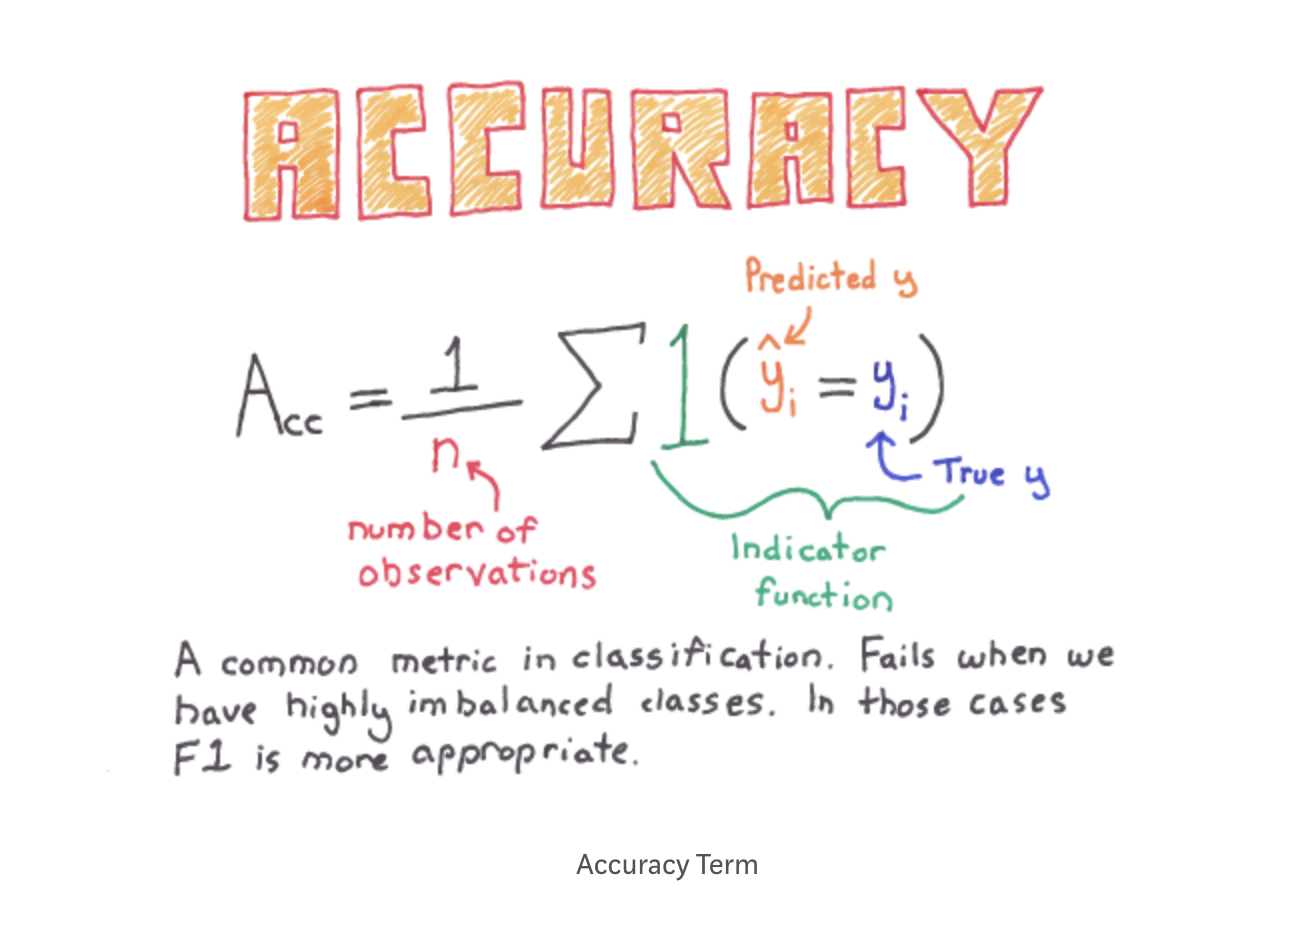 ACCURACY
Predicted y
Acc = 1/n Σ 1(ŷᵢ = yᵢ)
True y
number of
observations
Indicator
function
A common metric in classification. Fails when we
have highly imbalanced classes. In those cases
F1 is more appropriate.
Accuracy Term